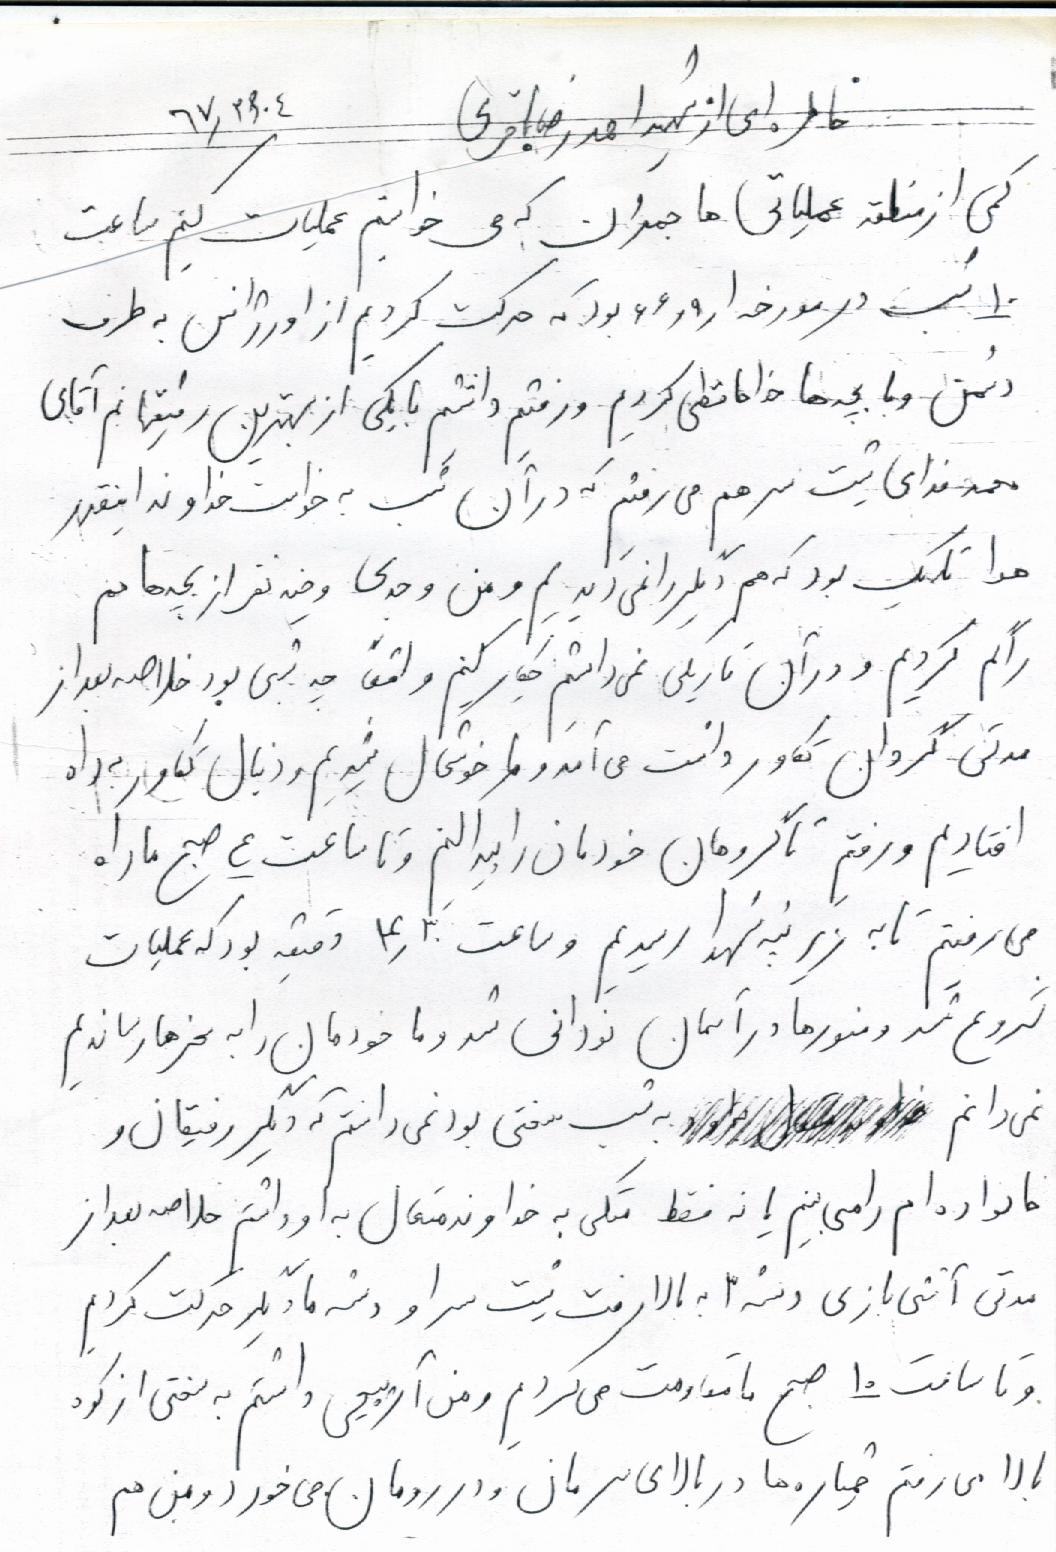 خاطره ای از شهید احمد رضا باقری
کمی از منطقه عملیاتی ماجمران که می خواستیم عملیات کنیم ساعت
۱۰ شب در مورخه بود که حرکت کردیم از اورژانس به طرف
دشمن و با بچه ها خداحافظی کردیم و رفتیم داشتم با یکی از بهترین رفیقهایم آقای
محمد فدای پشت سر هم می رفتیم که در آن شب به خواست خداوند اینقدر
هوا تاریک بود که هم دیگر را نمی دیدیم و من و چند نفر از بچه ها هم
را گم کردیم و در آن تاریکی نمی دانستم چکار کنیم واقعاً چه شبی بود خلاصه بعد از
مدتی گردان تکاور داشت می آمد و ما خوشحال شدیم و دنبال تکاور به راه
افتادیم و رفتیم تا گروهان خودمان را پیدا کنیم و تا ساعت ۴ صبح ما راه
می رفتیم تا به زیر تپه شهدا رسیدیم و ساعت ۴٫۳۰ دقیقه بود که عملیات
شروع شد و منورها در آسمان نورانی شد و ما خودمان را به سنگرها رساندیم
نمی دانم به شب سختی بود نمی دانستم که دیگر رفیقان و
خانواده ام را می بینم یا نه فقط متکی به خداوند متعال به او داشتم خلاصه بعد از
مدتی آتش بازی دسته ۳ به بالا رفت پشت سر او دسته ما دیگر حرکت کردیم
و تا ساعت ۱۰ صبح ما مقاومت می کردیم و من آرپیجی داشتم به سختی از کوه
بالا می رفتم خمپاره ها در بالای سرمان و در رومان می خورد و من هم